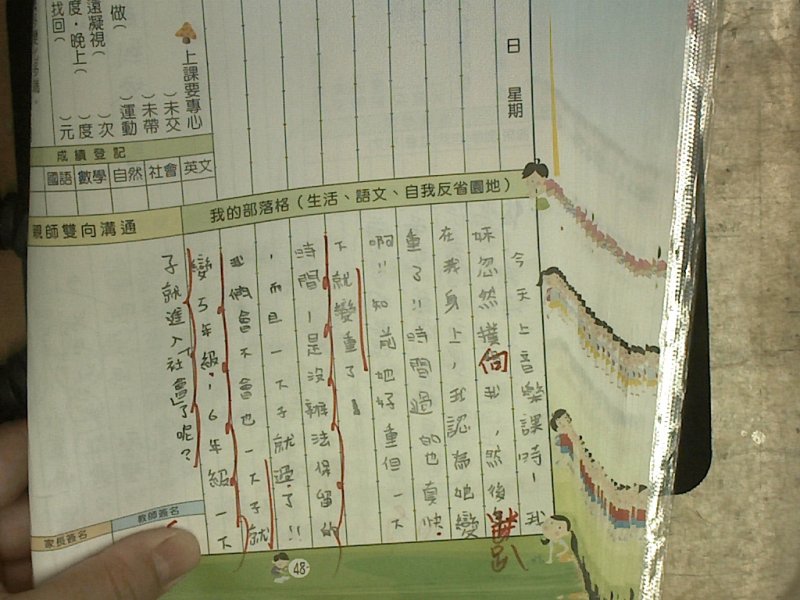 日 星期
上課要專心
)未交
)未帶
)運動
做(
)次
還凝視(
)度
度・晚上(
)元
找回(
成績登記
國語 數學 自然 社會 英文
我的部落格（生活、語文、自我反省園地）
今天上音樂課時,我
妹忽然撲向我,然後趴
在我身上,我認為她變
重了!!時間過的也真快.
啊!!知前她好重但一下
下就變重了!
時間!是沒辦法保留的
,而且一下子就過了!!
我們會不會也一下子就
變5年級,6年級一下
子就進入「社會」了呢?
親師雙向溝通
教師簽名
家長簽名
48